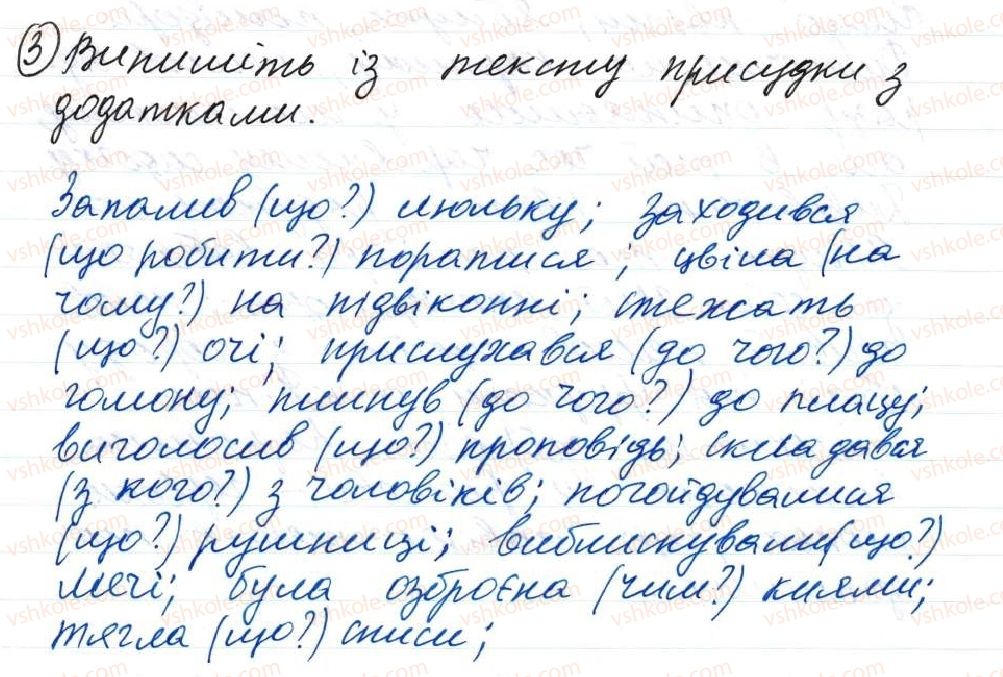 3 Випишіть із тексту присудки з
додатками.
Запалив (що?) люльку; заходився
(що робити?) поратися; цвіла (на
чому?) на підвіконні; стежать
(що?) очі; прислухався (до чого?) до
гомону; плинув (до чого?) до плацу;
виголосив (що?) проповідь; складався
(з кого?) з чоловіків; погойдувалися
(що?) рушниці; виблискували (що?)
мечі; була озброєна (чим?) киями;
тягла (що?) списи;